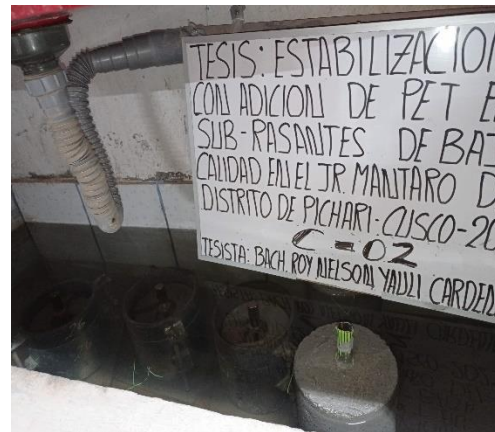 TESIS: ESTABILIZACION
CON ADICION DE PET E
SUB-RASANTES DE BAJ
CALIDAD EN EL JR. MANTARO D
DISTRITO DE PICHARI-CUSCO-20
C-02
TESISTA: BACH. ROY NELSON YAULI CARDEN